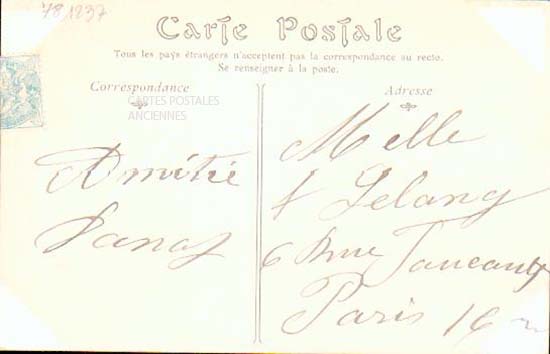 78 1237
Carte Postale
Tous les pays étrangers n'acceptent pas la correspondance au recto.
Se renseigner à la poste.
Correspondance
CARTES POSTALES
ANCIENNES
Amitié
Adresse
Melle
Lelang
6 Rue
Paris 16